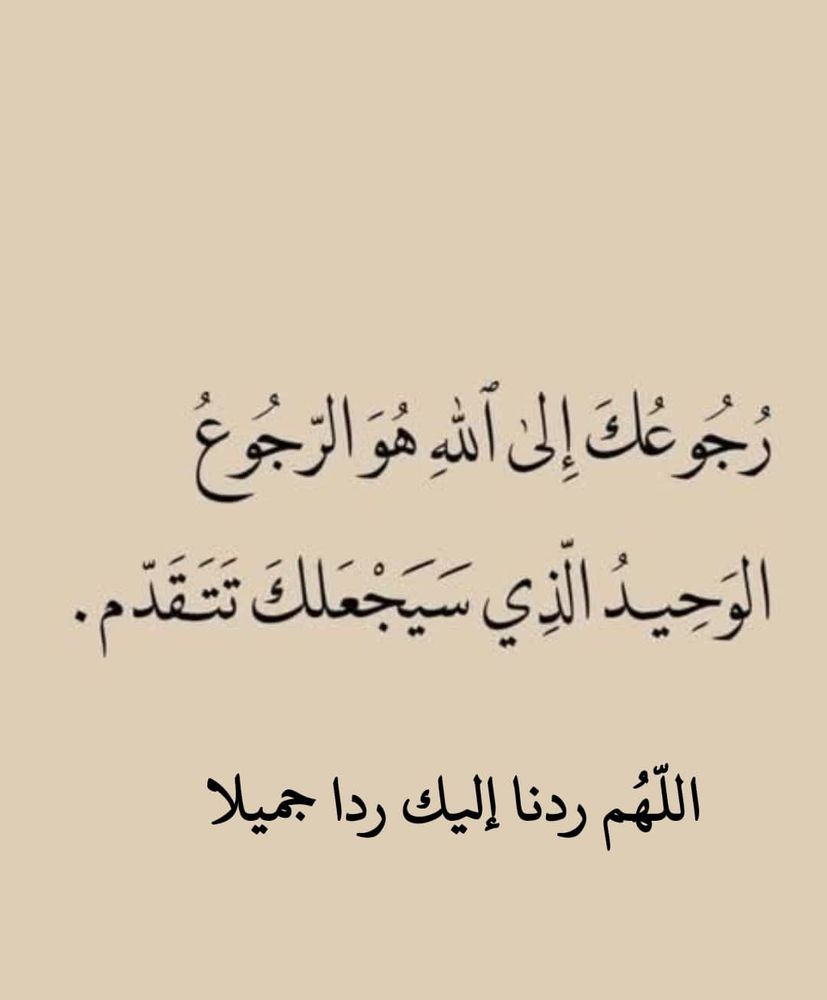 رُجُوعُكَ إِلىٰ ٱللهِ هُوَ الرّجُوعُ
الوَحِيدُ الّذِي سَيَجْعَلكَ تَتَقَدّم .
اللّهُم ردنا إليك ردا جميلا